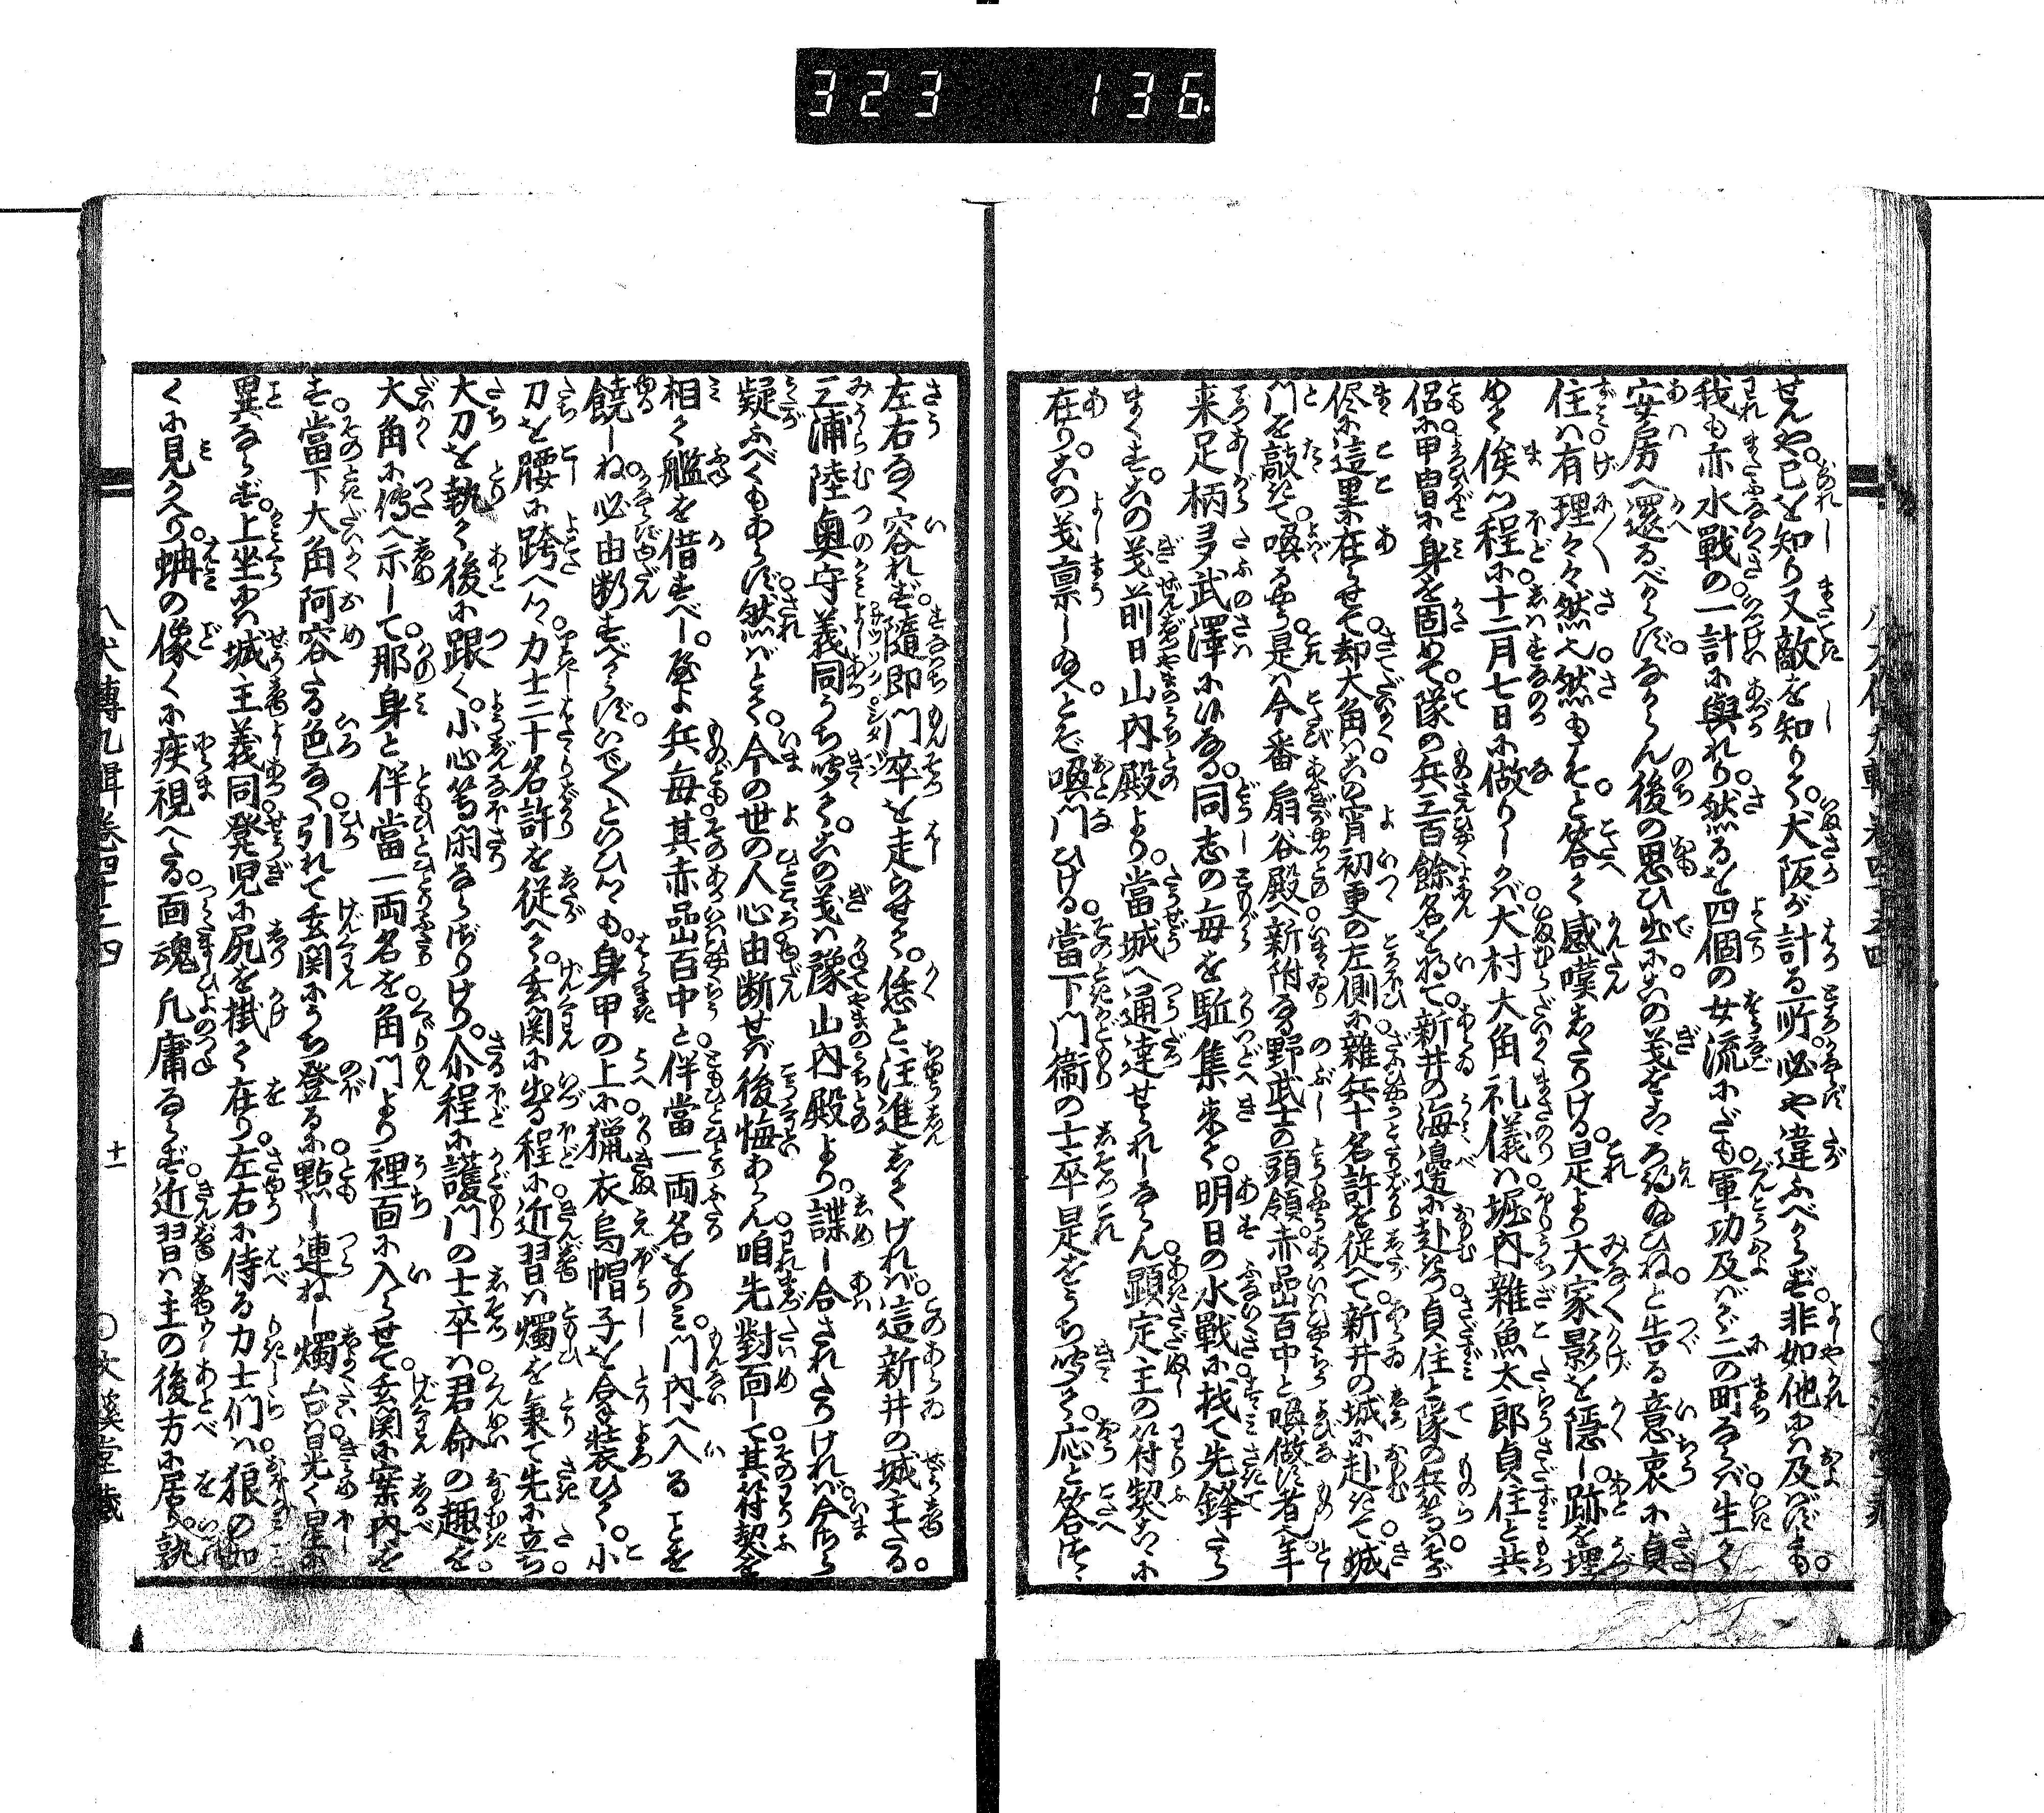 323 136
せんや。已を知り又敵を知りて。犬阪が計る所。必や違ふべからず。非如他には及ばずとも。
我も亦水戰の一計に與れり。然るを四個の女流にだも。軍功及ばで二の町ならば。生て
安房へ還るべからず。なからん後の思ひ出に。この義をころ得ねと告る意衷に貞
住は有理々々然也。然もこそと答て感嘆したりける。是より大家影を隱し。跡を埋
めて俟つ程に。十二月七日に做りしかば。犬村大角礼儀は。堀内雜魚太郎貞住と共
侶に。甲冑に身を固めて。隊の兵三百餘名を將て。新井の海邊に赴きつ。貞住と隊の兵等をば。
侭に這里に在らせて。却大角はこの宵初更の左側に。雜兵十名許を從へて。新井の城に赴きて。城
門を敲きて。喚るやう。是は今番扇谷殿へ新附なる。野武士の頭領。赤嵒百中と喚做す者。今年
来足柄多武澤にをる。同志の毎を駈集来て。明日の水戰に找て先鋒たら
まくす。この義前日山内殿より。當城へ通達せられしならん。顕定主の符契こゝに
在り。この義禀し給へとぞ喚門ひける。當下門衞の士卒是をうち听て。応と答つゝ
左右なく容れず。隨即門卒を走らせて。恁と注進してければ。這新井の城主たる。
三浦陸奥守義同うち听て。この義は豫山内殿より。諜し合されたりければ。今さら
疑ふべくもあらず。然ばとて。今の世の人心由断せば後悔あらん。咱先對面して其符契を
相て艦を借すべし。やよ兵毎。其赤嵒百中と。伴當一両名をのみ。門内へ入ることを
饒しね。必由断すべからず。いでとくといひつゝも。身甲の上に。獵衣烏帽子を合裝ひて。小
刀を腰に跨へつゝ。力士二十名許を從へて。玄関に出る程に。近習は燭を秉て先に立ち。
大刀を執て後に跟く。小心等閑ならざりけり。尒程に護門の士卒は。君命の趣を。
大角に傳へ示して。那身と伴當一両名を。角門より裡面に入らせて。玄関に案内を
す。當下大角阿容たる色なく。引れて玄関にうち登るに。點し連ねし燭台は晃光く星に
異ならず。上坐には城主義同。登児に尻を掛て在り。左右に侍る力士們は。狼の如
くに見えかへり。蚺の像くに疾視へたる。面魂凡庸ならず。近習は主の後方に居て。孰
八犬傳九輯卷四十二四
十一
○文溪堂藏